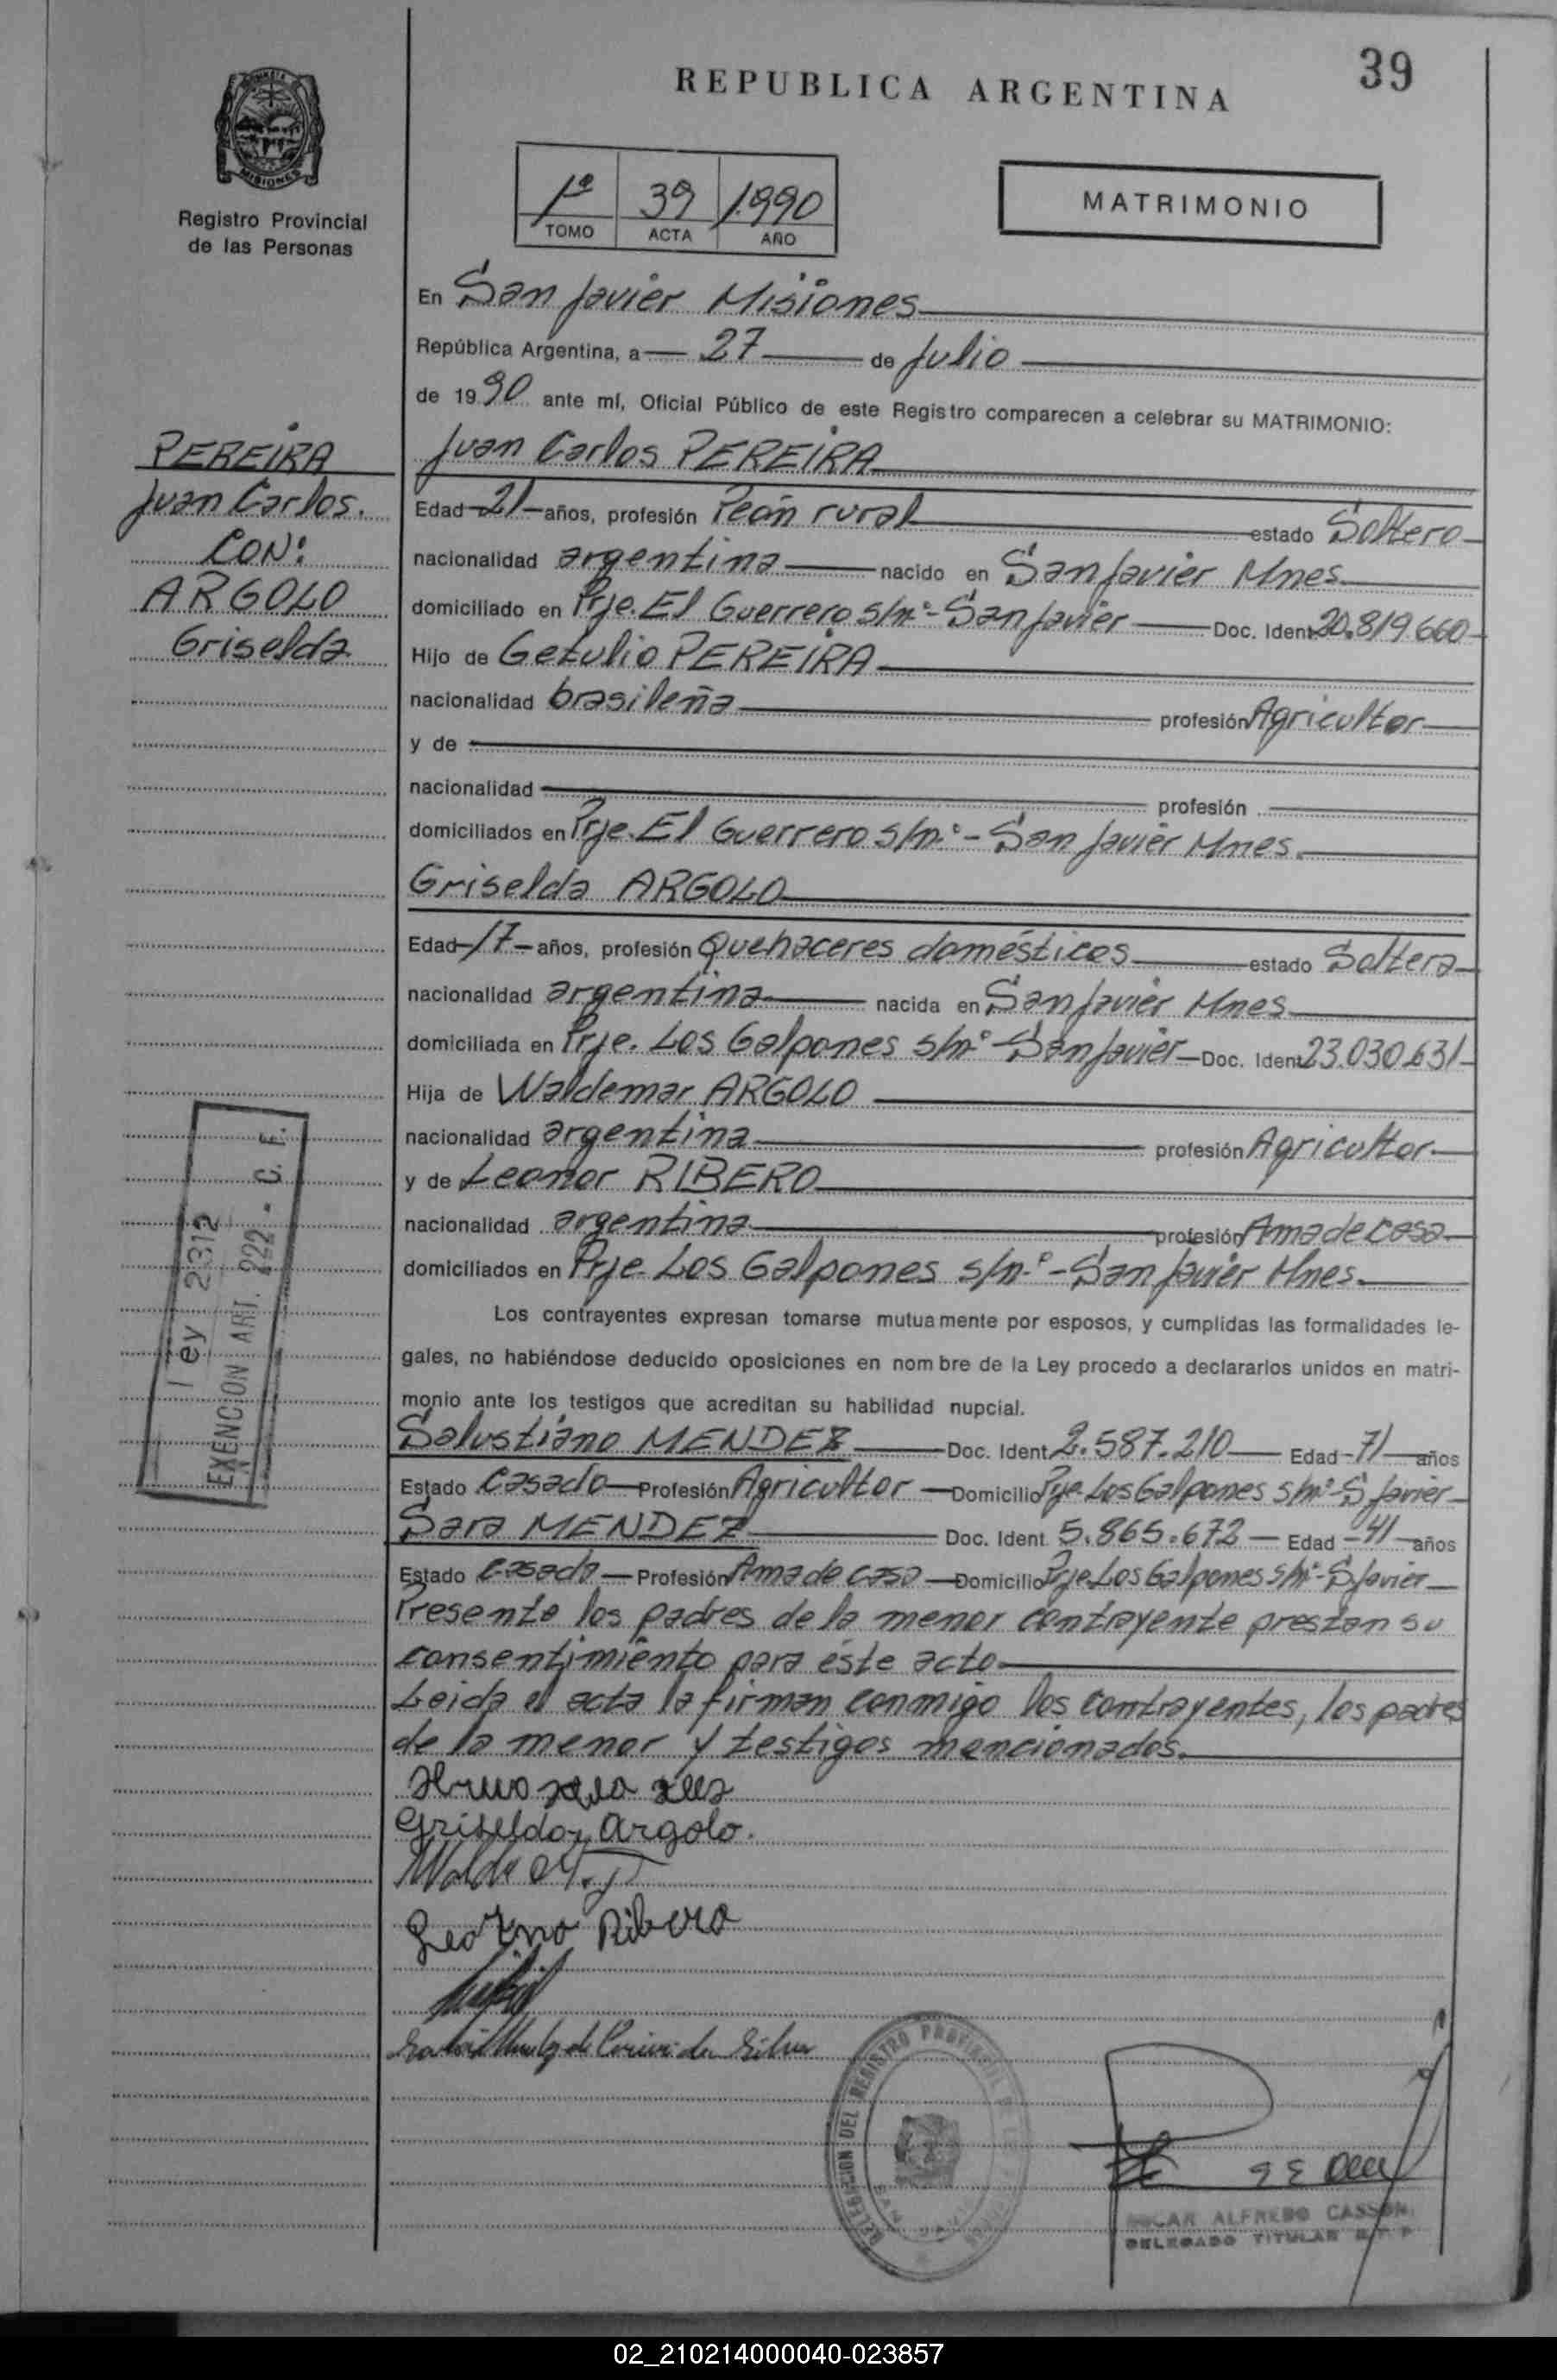 39
REPUBLICA ARGENTINA
MISIONES
Registro Provincial
de las Personas
1º 39 1990
TOMO ACTA AÑO
MATRIMONIO
En San Javier Misiones
República Argentina, a 27 de Julio
de 1990 ante mí, Oficial Público de este Registro comparecen a celebrar su MATRIMONIO:
PEREIRA
Juan Carlos.
CON:
ARGOLO
Griselda
Juan Carlos PEREIRA
Edad 21 años, profesión Peón rural estado Soltero
nacionalidad argentina nacido en San Javier Mnes
domiciliado en Prje. El Guerrero s/nº - San Javier Doc. Ident 20.819660
Hijo de Getulio PEREIRA
nacionalidad brasileña profesión Agricultor
y de
nacionalidad profesión
domiciliados en Prje. El Guerrero s/n.º - San Javier Mnes.
Griselda ARGOLO
Edad 17 años, profesión Quehaceres domésticos estado Soltera
nacionalidad argentina nacida en San Javier Mnes
domiciliada en Prje. Los Galpones s/nº - San Javier Doc. Ident 23.030.631
Hija de Waldemar ARGOLO
nacionalidad argentina profesión Agricultor
y de Leonor RIBERO
nacionalidad argentina profesión Ama de casa
domiciliados en Prje. Los Galpones s/n.º - San Javier Mnes.
Los contrayentes expresan tomarse mutuamente por esposos, y cumplidas las formalidades le-
gales, no habiéndose deducido oposiciones en nombre de la Ley procedo a declararlos unidos en matri-
monio ante los testigos que acreditan su habilidad nupcial.
Ley 2312
EXENCION ART. 222 - C. F.
Salustiano MENDEZ Doc. Ident 2.587.210 Edad 71 años
Estado Casado Profesión Agricultor Domicilio Prje Los Galpones s/nº - S Javier
Sara MENDEZ Doc. Ident. 5.865.672 Edad 41 años
Estado casada Profesión Ama de casa Domicilio Prje Los Galpones s/nº - S Javier
Presente los padres de la menor contrayente prestan su
consentimiento para éste acto
Leida el acta la firman conmigo los contrayentes, los padres
de la menor y testigos mencionados.
Griselda Argolo.
Ribero
DELEGACION DEL REGISTRO PROVINCIAL
OSCAR ALFREDO CASSONI
DELEGADO TITULAR R.P.P
02_210214000040-023857